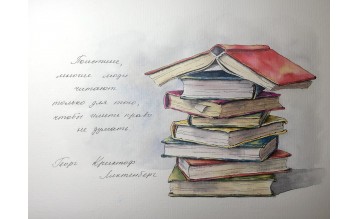 Поистине,
многие люди
читают
только для того,
чтобы иметь право
не думать.
Георг Кристоф
Лихтенберг